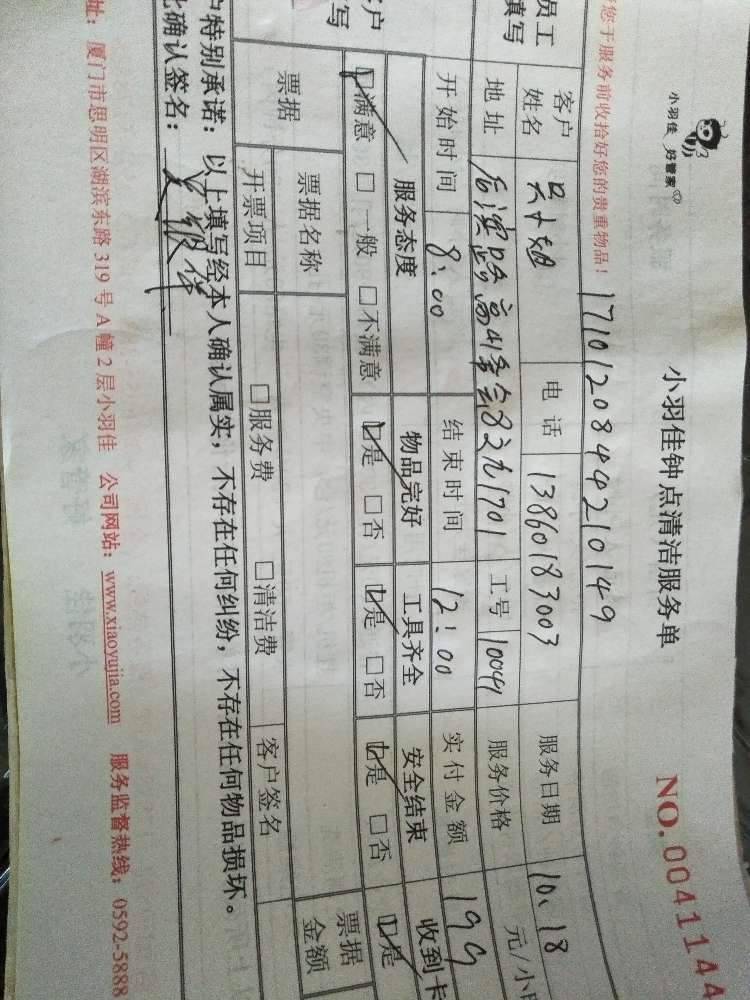 小羽佳 好管家
小羽佳钟点清洁服务单
NO.0041144
您于服务前收拾好您的贵重物品！
17101208442210149
员工
填写
客户姓名 吴小姐 电话 13860183003 服务日期 10、18
地址 后滨路高山 1701 工号 10041 服务价格 元/小
开始时间 8:00 结束时间 12:00 实付金额 199
户
写
服务态度 物品完好 工具齐全 安全结束 收到卡
☑满意 □一般 □不满意 ☑是 □否 ☑是 □否 ☑是 □否 ☑是
票据 票据名称 票据金额
开票项目 □服务费 □清洁费 客户签名
户特别承诺：以上填写经本人确认属实，不存在任何纠纷，不存在任何物品损坏。
此确认签名：
址：厦门市思明区湖滨东路319号A幢2层小羽佳 公司网站：www.xiaoyujia.com 服务监督热线：0592-5888